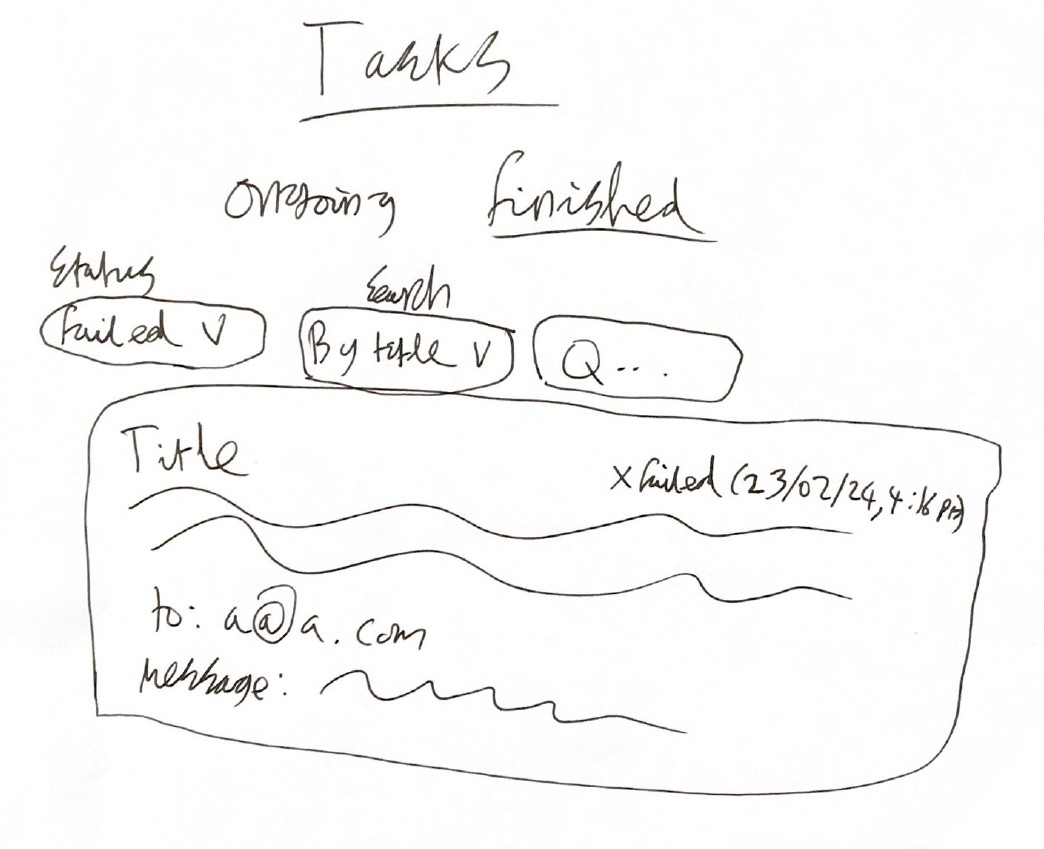 Tasks
Ongoing finished
Status Search
Failed V By title V Q...
Title
X Failed (23/02/24, 4:16 PM)
to: a@a.com
Message: